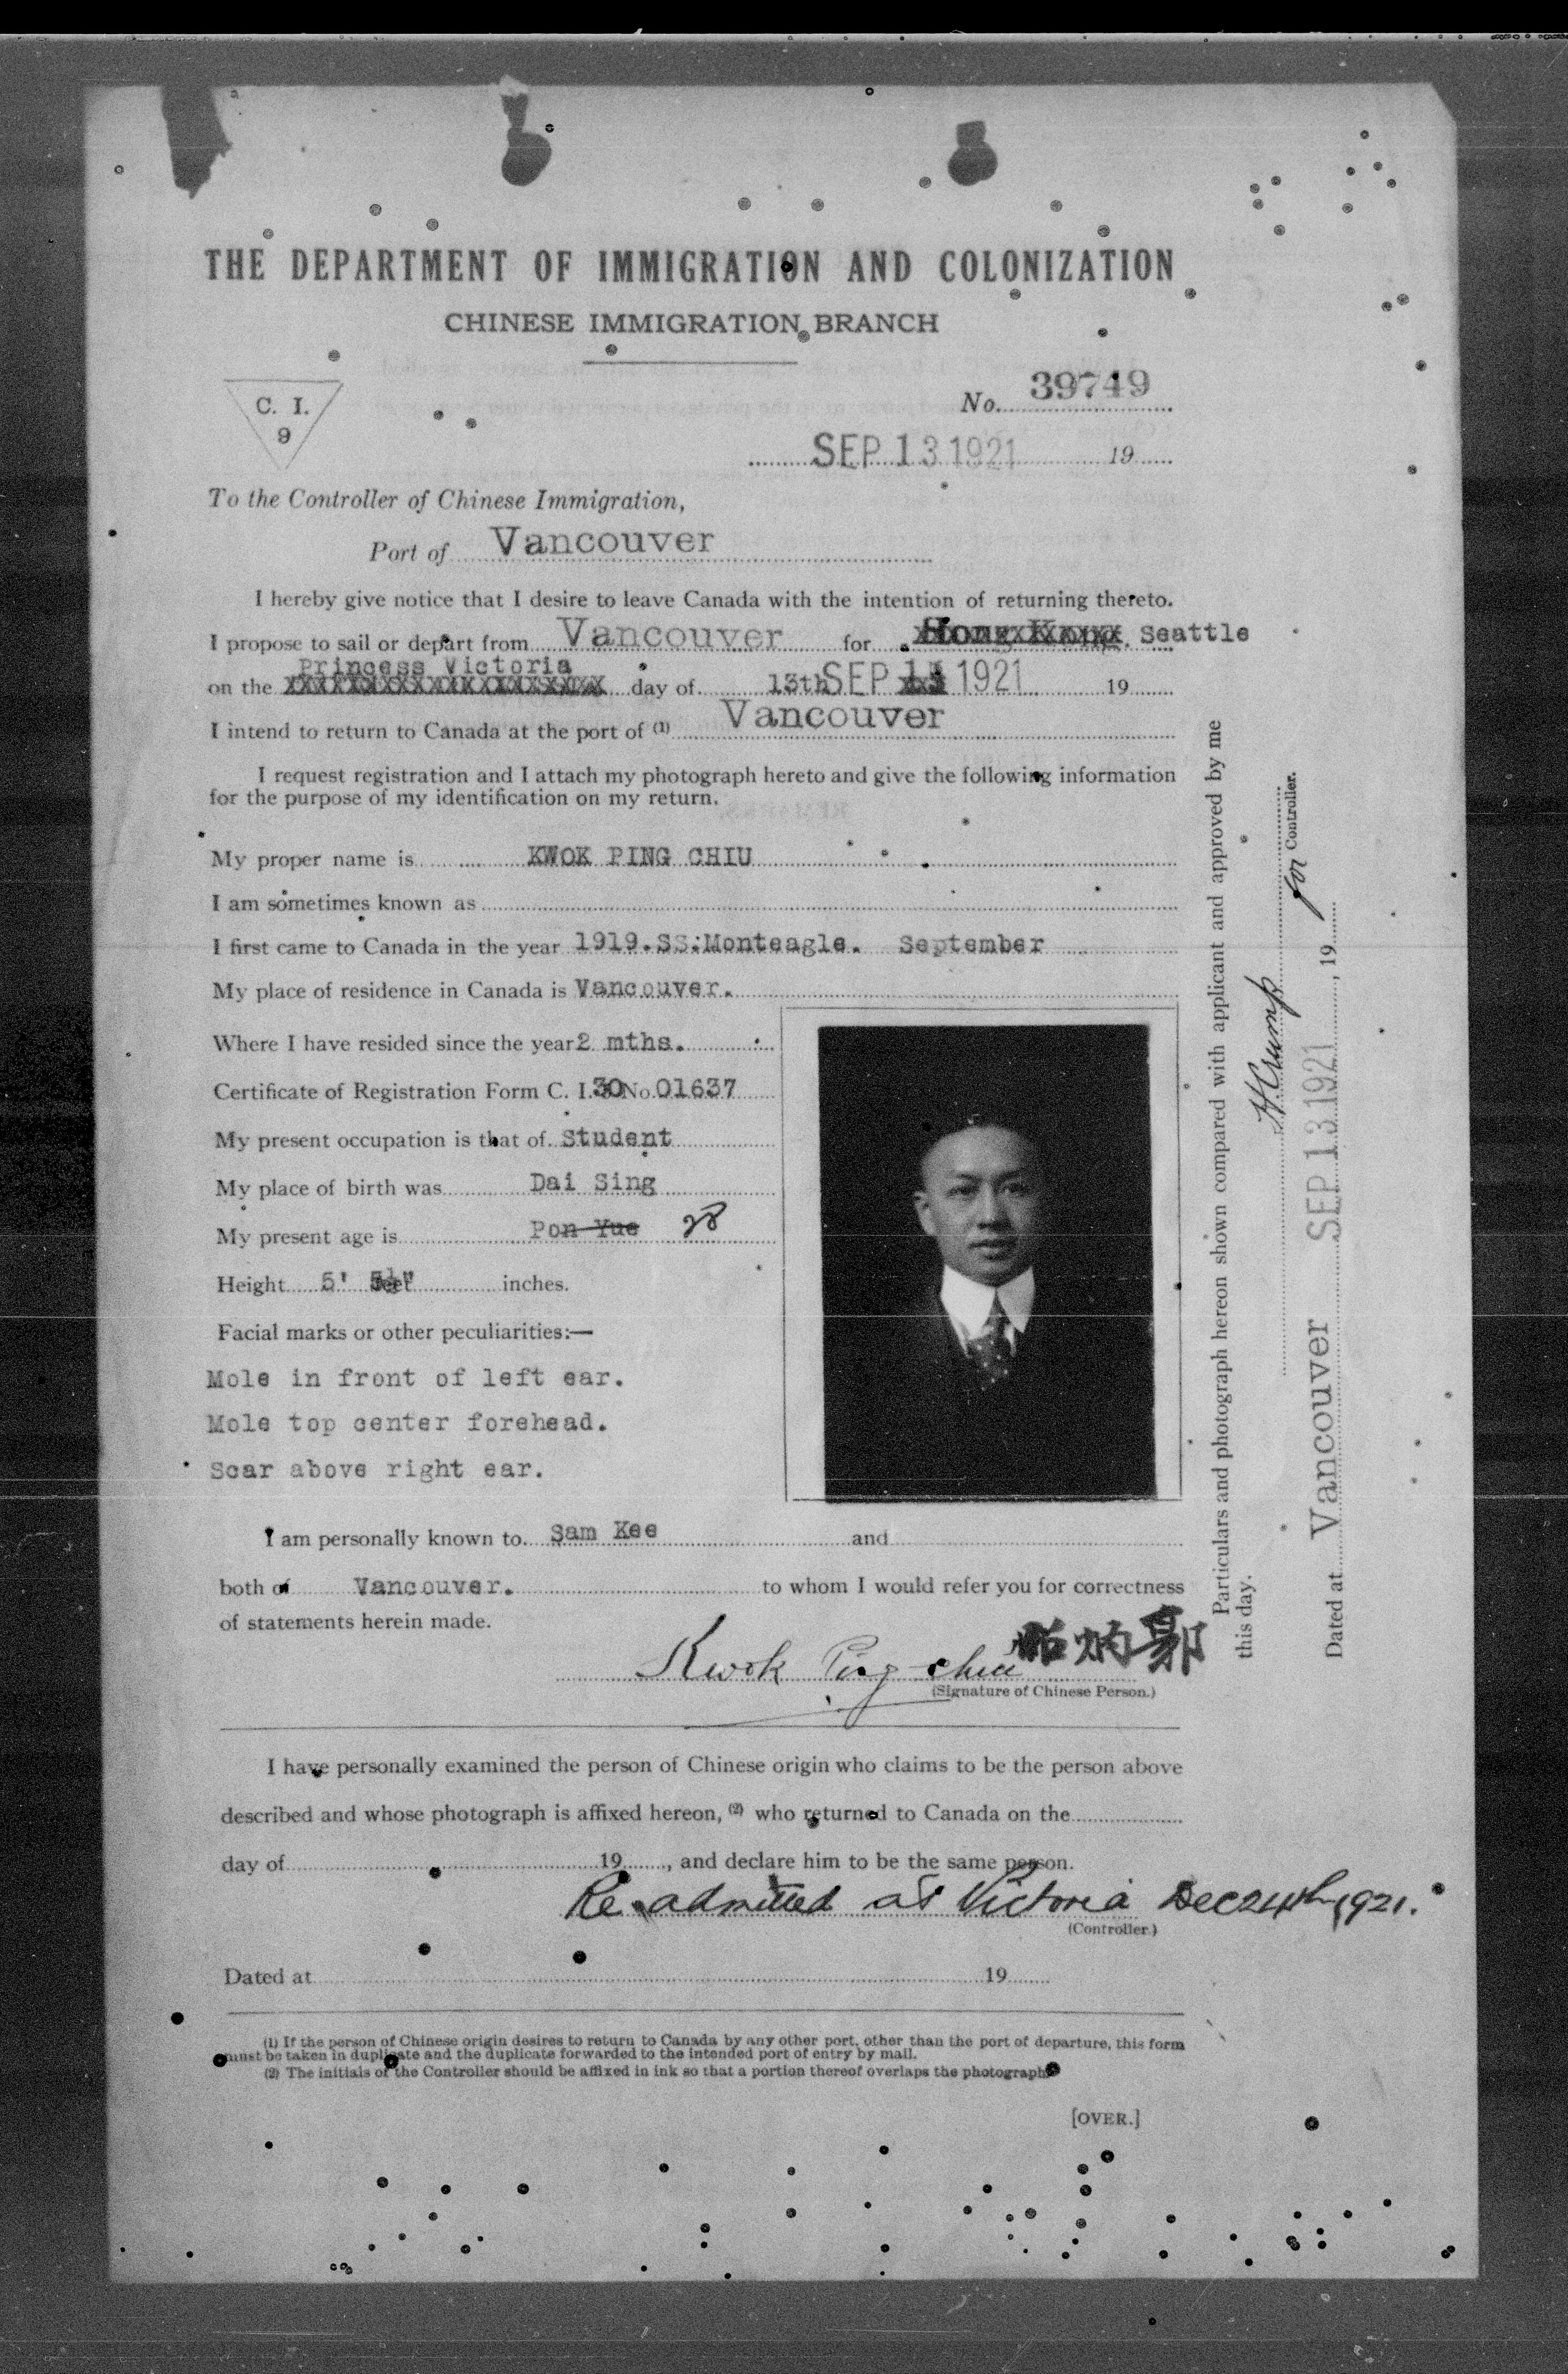 THE DEPARTMENT OF IMMIGRATION AND COLONIZATION
CHINESE IMMIGRATION BRANCH
C. I.
9
No. 39749
SEP 13 1921 19
To the Controller of Chinese Immigration,
Port of Vancouver
I hereby give notice that I desire to leave Canada with the intention of returning thereto.
I propose to sail or depart from Vancouver for Hong Kong. Seattle
Princess Victoria
on the day of 13th SEP 13 1921 19
I intend to return to Canada at the port of (1) Vancouver
I request registration and I attach my photograph hereto and give the following information
for the purpose of my identification on my return.
My proper name is KWOK PING CHIU
I am sometimes known as
I first came to Canada in the year 1919.SS.Monteagle. September
My place of residence in Canada is Vancouver.
Where I have resided since the year 2 mths.
Certificate of Registration Form C. I. 30 No. 01637
My present occupation is that of Student
My place of birth was Dai Sing
My present age is Pon Yue 28
Height 5' 5½" inches.
Facial marks or other peculiarities:—
Mole in front of left ear.
Mole top center forehead.
Scar above right ear.
I am personally known to Sam Kee and
both of Vancouver. to whom I would refer you for correctness
of statements herein made.
Kwok Ping chiu 炳郭
(Signature of Chinese Person.)
I have personally examined the person of Chinese origin who claims to be the person above
described and whose photograph is affixed hereon, (2) who returned to Canada on the
day of 19, and declare him to be the same person.
Re-admitted at Victoria Dec 24th 1921.
(Controller.)
Dated at 19
(1) If the person of Chinese origin desires to return to Canada by any other port, other than the port of departure, this form
must be taken in duplicate and the duplicate forwarded to the intended port of entry by mail.
(2) The initials of the Controller should be affixed in ink so that a portion thereof overlaps the photograph.
[OVER.]
Particulars and photograph hereon shown compared with applicant and approved by me
this day.
H Crump
for Controller.
Dated at Vancouver SEP 13 1921, 19